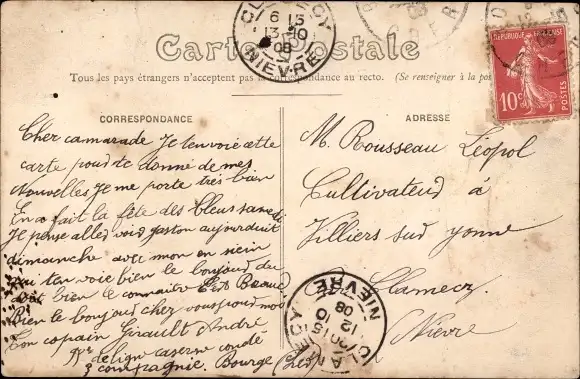 Carte Postale
Tous les pays étrangers n'acceptent pas la correspondance au recto. (Se renseigner à la pos
CORRESPONDANCE
Cher camarade Je tenvoie cette
carte pour te donné de mes
Nouvelles Je me porte très bien
En a fait la fête des Bleus samedi
Je pense alled void gaston aujourduit
dimanche avec mon en siein
qui ten voie bien le boujoud du
doit bien le connaitre
bien le boujoud chez vous pour moi
Ton copain Girault André
de ligne caserne condé
compagnie. Bourge (Cher)
ADRESSE
M. Rousseau Léopol
Cultivateud à
Villiers sud yonne
Clamecy
Nièvre
CLAMECY
6 15
13 - 10
08
NIEVRE
REPUBLIQUE FRANÇAISE
10c
POSTES
CLAMECY
12 10
08
NIEVRE